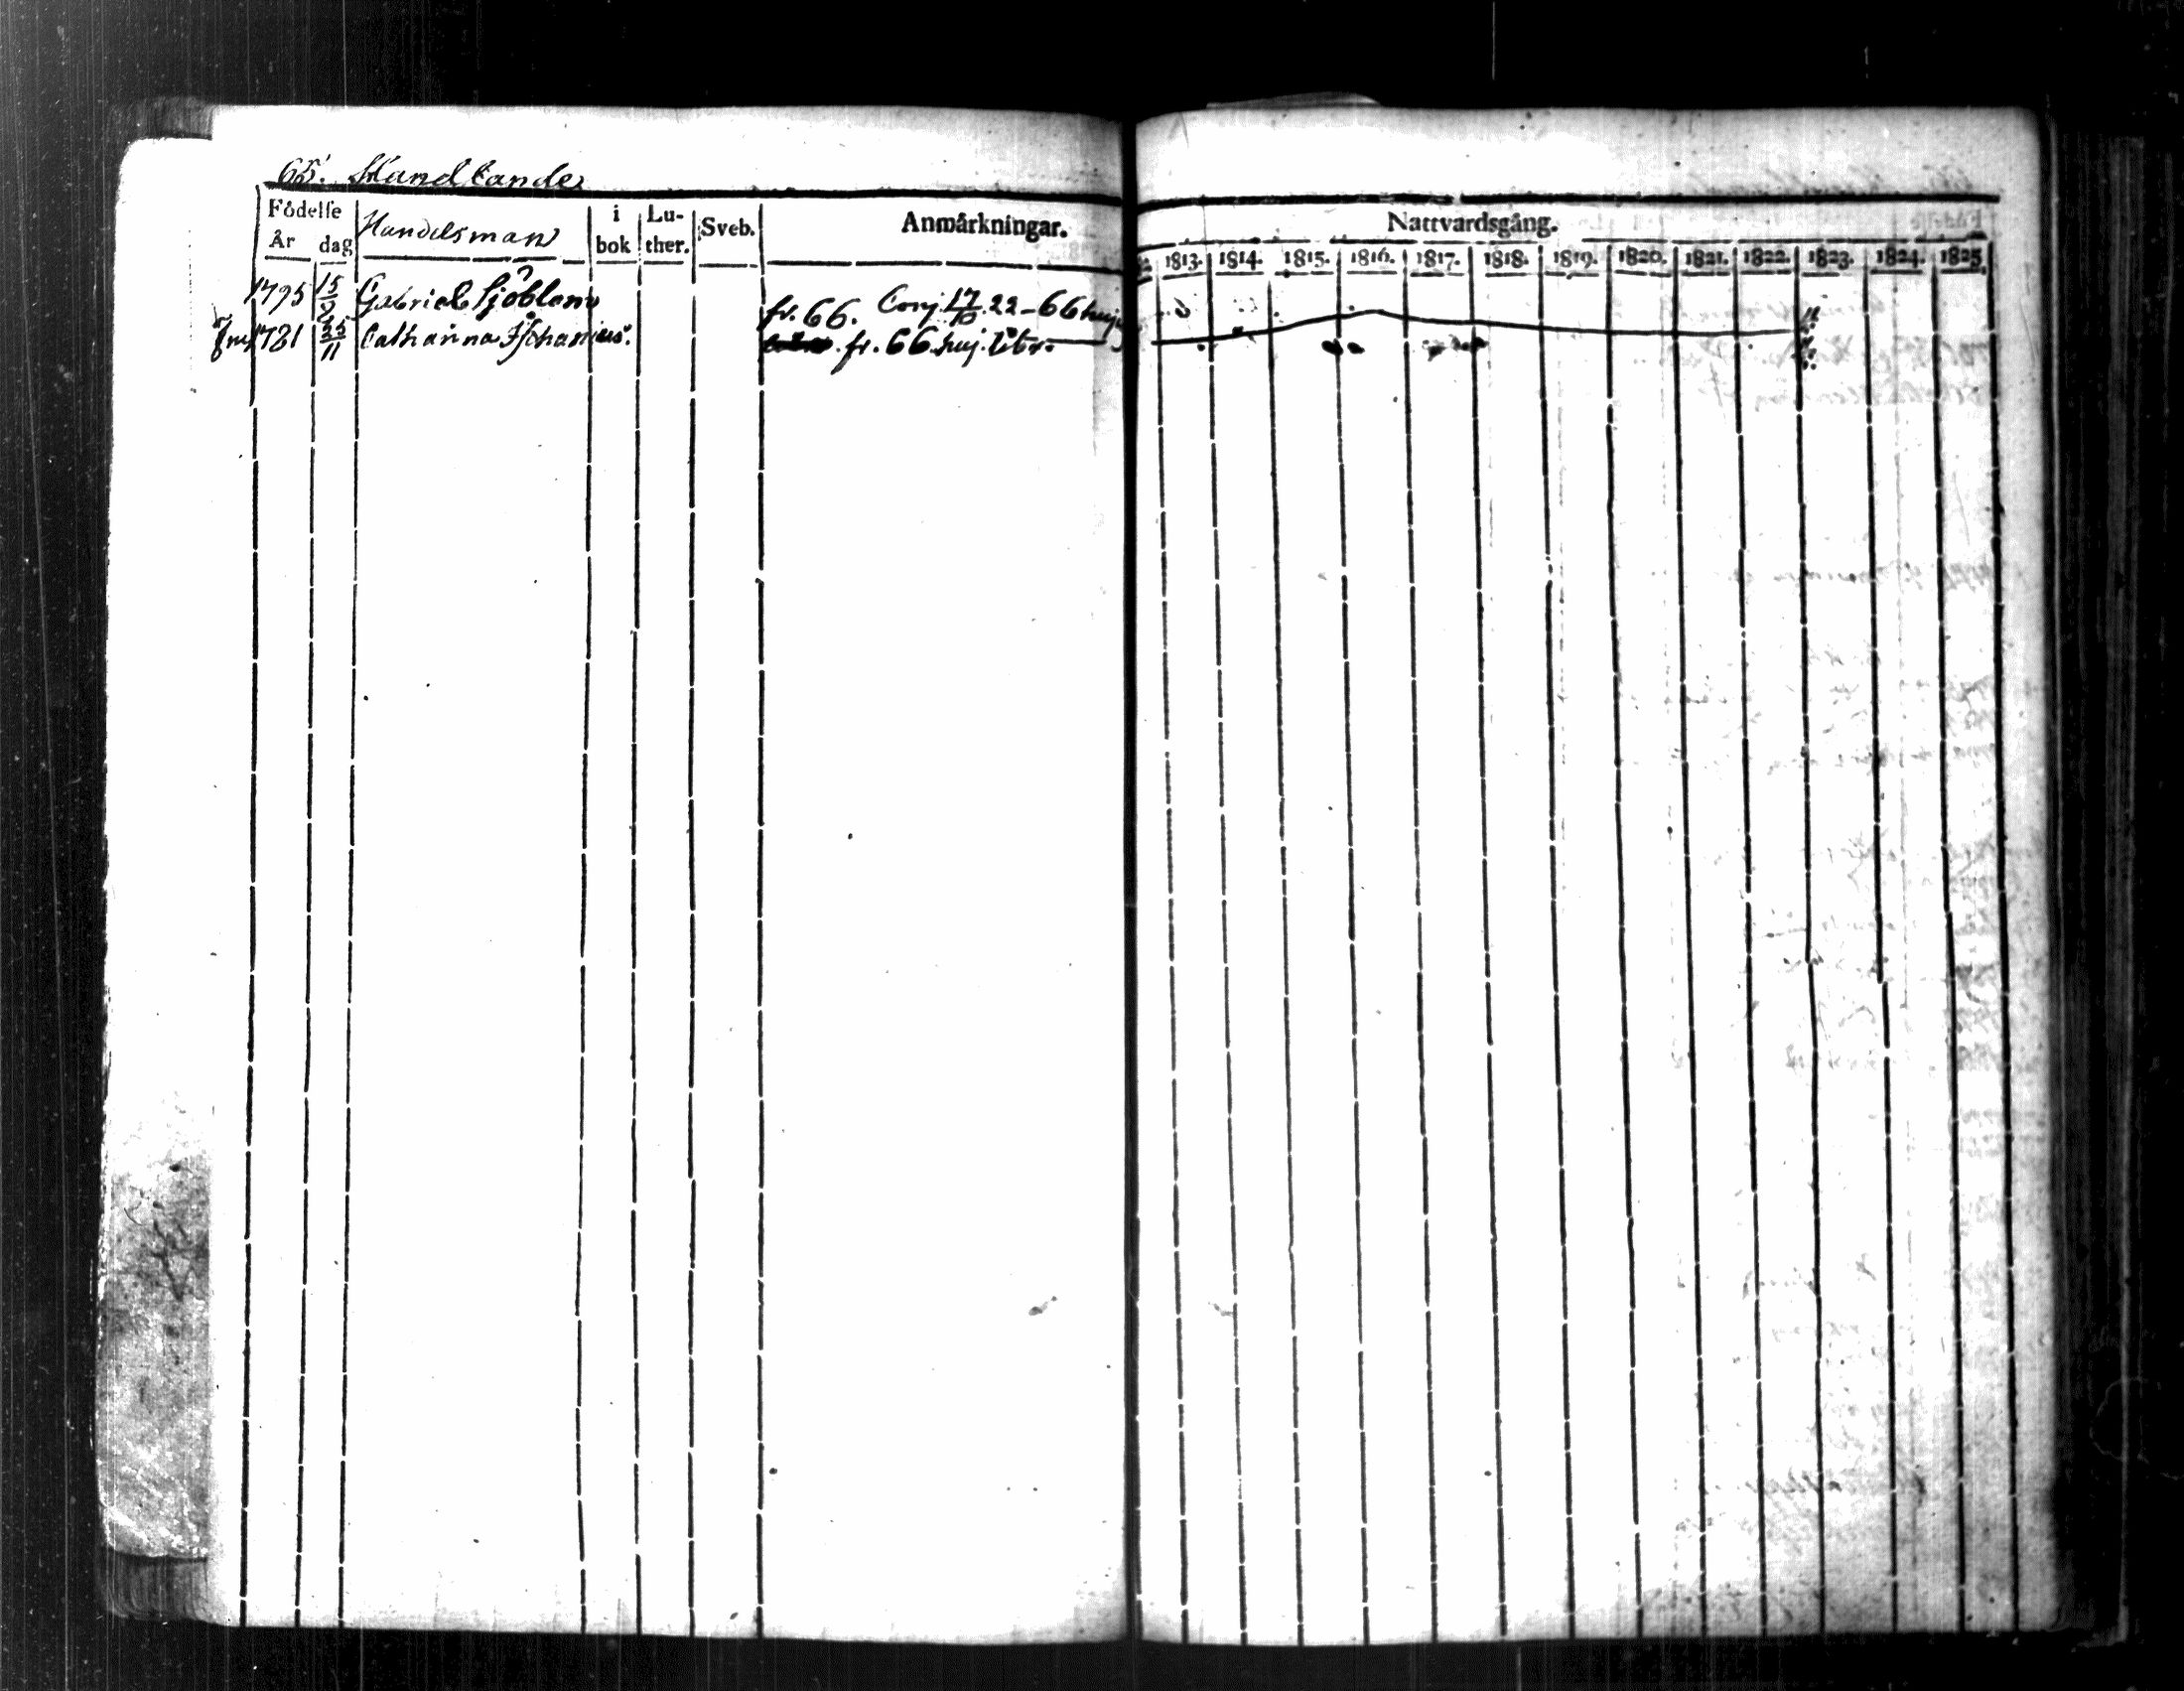 65. Handlande
Födelse
År dag
Handelsman
i bok
Lu-ther.
Sveb.
Anmärkningar.
Nattvardsgång.
1813. 1814. 1815. 1816. 1817. 1818. 1819. 1820. 1821. 1822. 1823. 1824. 1825.
1795 15/2 Gabriel Sjöblom fr. 66. Conj. 17/10 22 – 66 huj
1781 25/11 Catharina fr. 66. huj. libr.